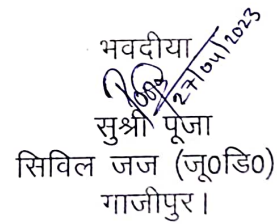 भवदीया
27/04/2023
सुश्री पूजा
सिविल जज (जू0डि0)
गाजीपुर।